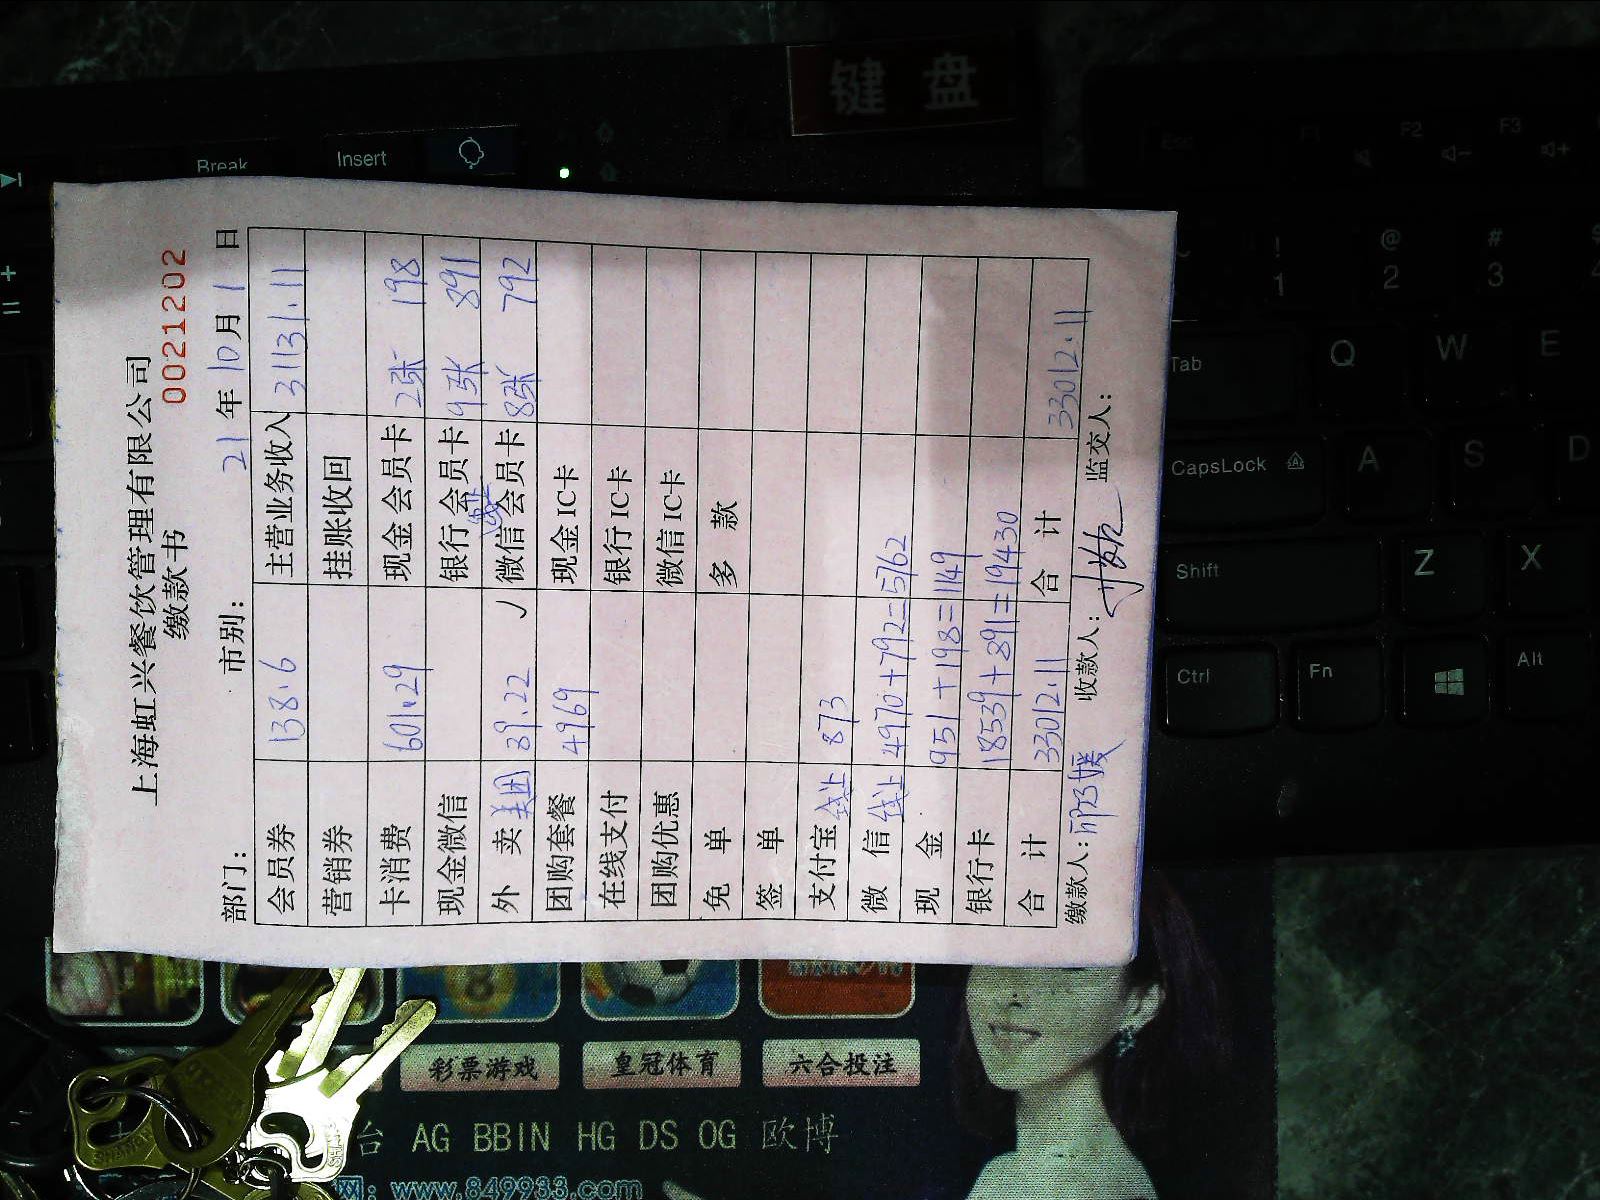 键 盘
Break
Insert
上海虹兴餐饮管理有限公司
缴款书
0021202
部门: 市别: 21 年 10 月 1 日
会员券 138.6 主营业务收入 31131.11
营销券 挂账收回
卡消费 601.29 现金会员卡 2张 198
现金微信 银行会员卡 9张 891
外 卖 美团 39.22 ✓ 微信会员卡 线上 8张 792
团购套餐 4969 现金IC卡
在线支付 银行IC卡
团购优惠 微信IC卡
免 单 多 款
签 单
支付宝 线上 873
微 信 线上 4970+792=5762
现 金 951+198=1149
银行卡 18539+891=19430
合 计 33012.11 合 计 33012.11
缴款人: 收款人: 监交人:
Esc F1 F2 F3
! 1 @ 2 # 3
Tab Q W E
CapsLock A S D
Shift Z X
Ctrl Fn Alt
彩票游戏 皇冠体育 六合投注
台 AG BBIN HG DS OG 欧博
网: www.849933.com